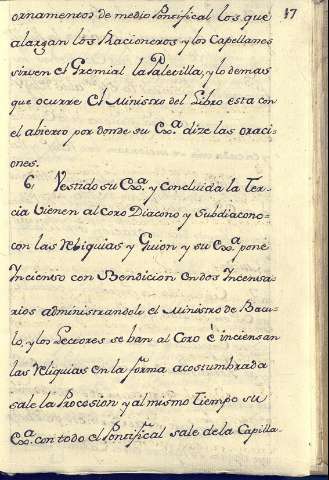 17
ornamentos de medio Pontifical los que
alargan los Racioneros y los Capellanes
sirven el Gremial la Paletilla, y lo demas
que ocurre El Ministro del Libro esta con
el abierto por donde su Exª dize las oraci-
ones.
6 Vestido su Exª y concluida la Ter-
cia vienen al Coro Diacono y Subdiacono-
con las Reliquias y Guion y su Exª pone
Incienso con Bendicion en dos Incensa-
rios administrandole el Ministro de Bacu-
lo, y los Lectores se ban al Coro è inciensan
las Reliquias en la forma acostumbrada
sale la Procesion y al mismo Tiempo su
Exª con todo el Pontifical sale de la Capilla-